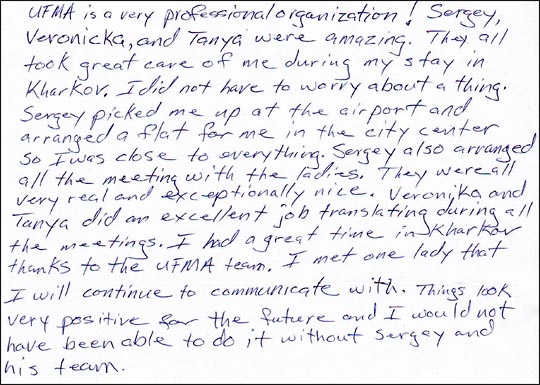 UFMA is a very professional organization! Sergey,
Veronicka, and Tanya were amazing. They all
took great care of me during my stay in
Kharkov. I did not have to worry about a thing.
Sergey picked me up at the airport and
arranged a flat for me in the city center
so I was close to everything. Sergey also arranged
all the meeting with the ladies. They were all
very real and exceptionally nice. Veronika and
Tanya did an excellent job translating during all
the meetings. I had a great time in Kharkov
thanks to the UFMA team. I met one lady that
I will continue to communicate with. Things look
very positive for the future and I would not
have been able to do it without Sergey and
his team.